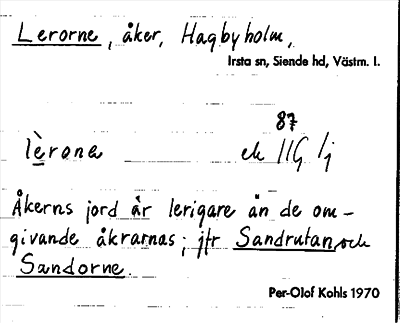 Lerorne, åker, Hagbyholm,
Irsta sn, Siende hd, Västm. l.
87
lèrona ek 11G lj
Åkerns jord är lerigare än de om-
givande åkrarnas; jfr Sandrutan och
Sandorne.
Per-Olof Kohls 1970